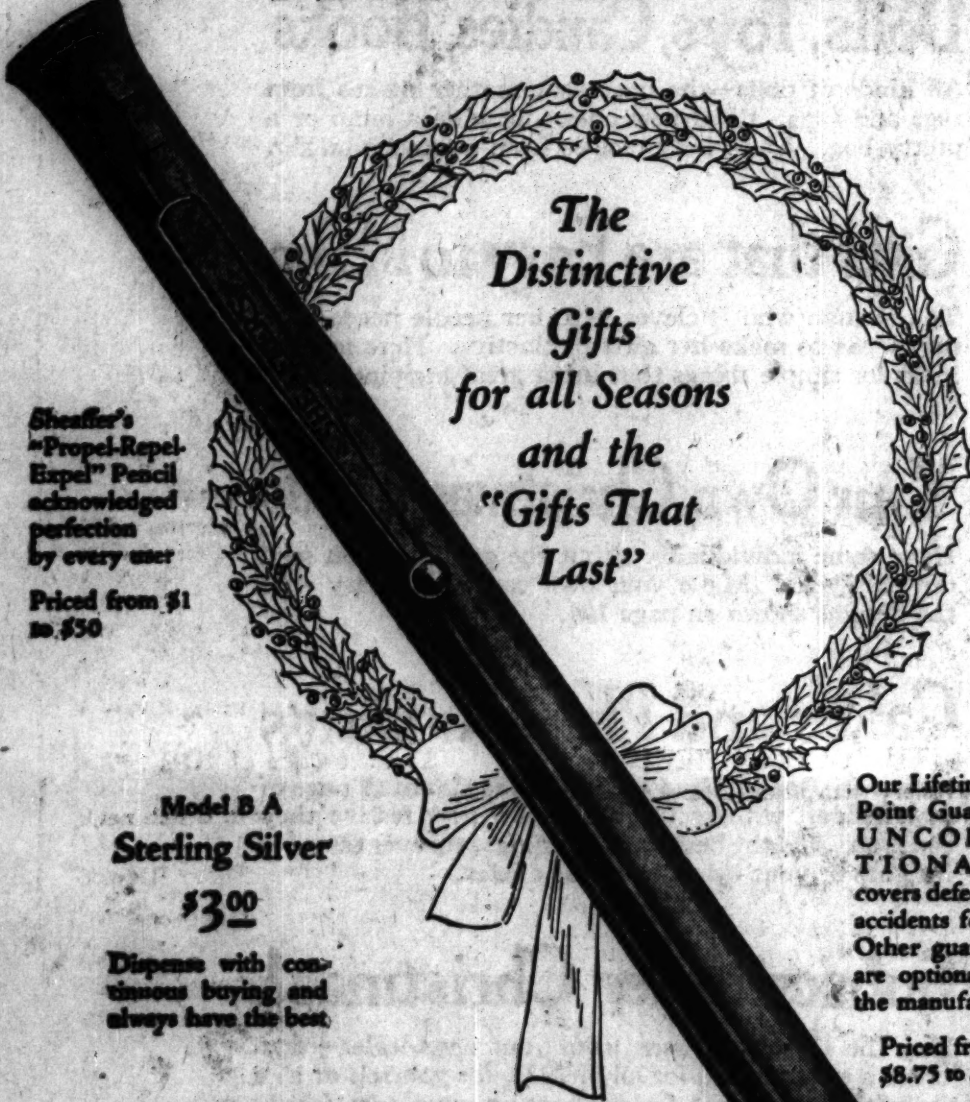 The
Distinctive
Gifts
for all Seasons
and the
"Gifts That
Last"
Sheaffer's
"Propel-Repel-
Expel" Pencil
acknowledged
perfection
by every user
Priced from $1
to $50
Model B A
Sterling Silver
$3.00
Dispense with con-
tinuous buying and
always have the best
Our Lifetim
Point Gua
UNCO
TIONA
covers defe
accidents f
Other gua
are optiona
the manufa
Priced fr
$8.75 to